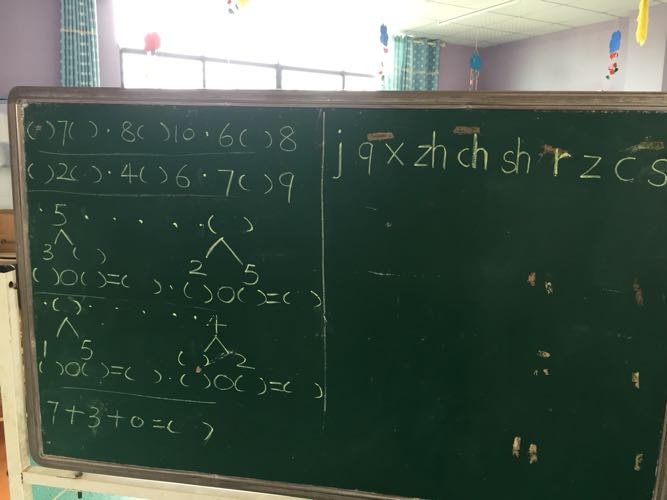 ( )7( ) · 8( )10 · 6( )8
( )2( ) · 4( )6 · 7( )9
· 5 · · · · · ( )
3 ( ) 2 5
( )○( )=( ) · ( )○( )=( )
· ( ) · · · · 4
1 5 ( ) 2
( )○( )=( ) · ( )○( )=( )
7+3+0=( )
j q x zh ch sh r z c s